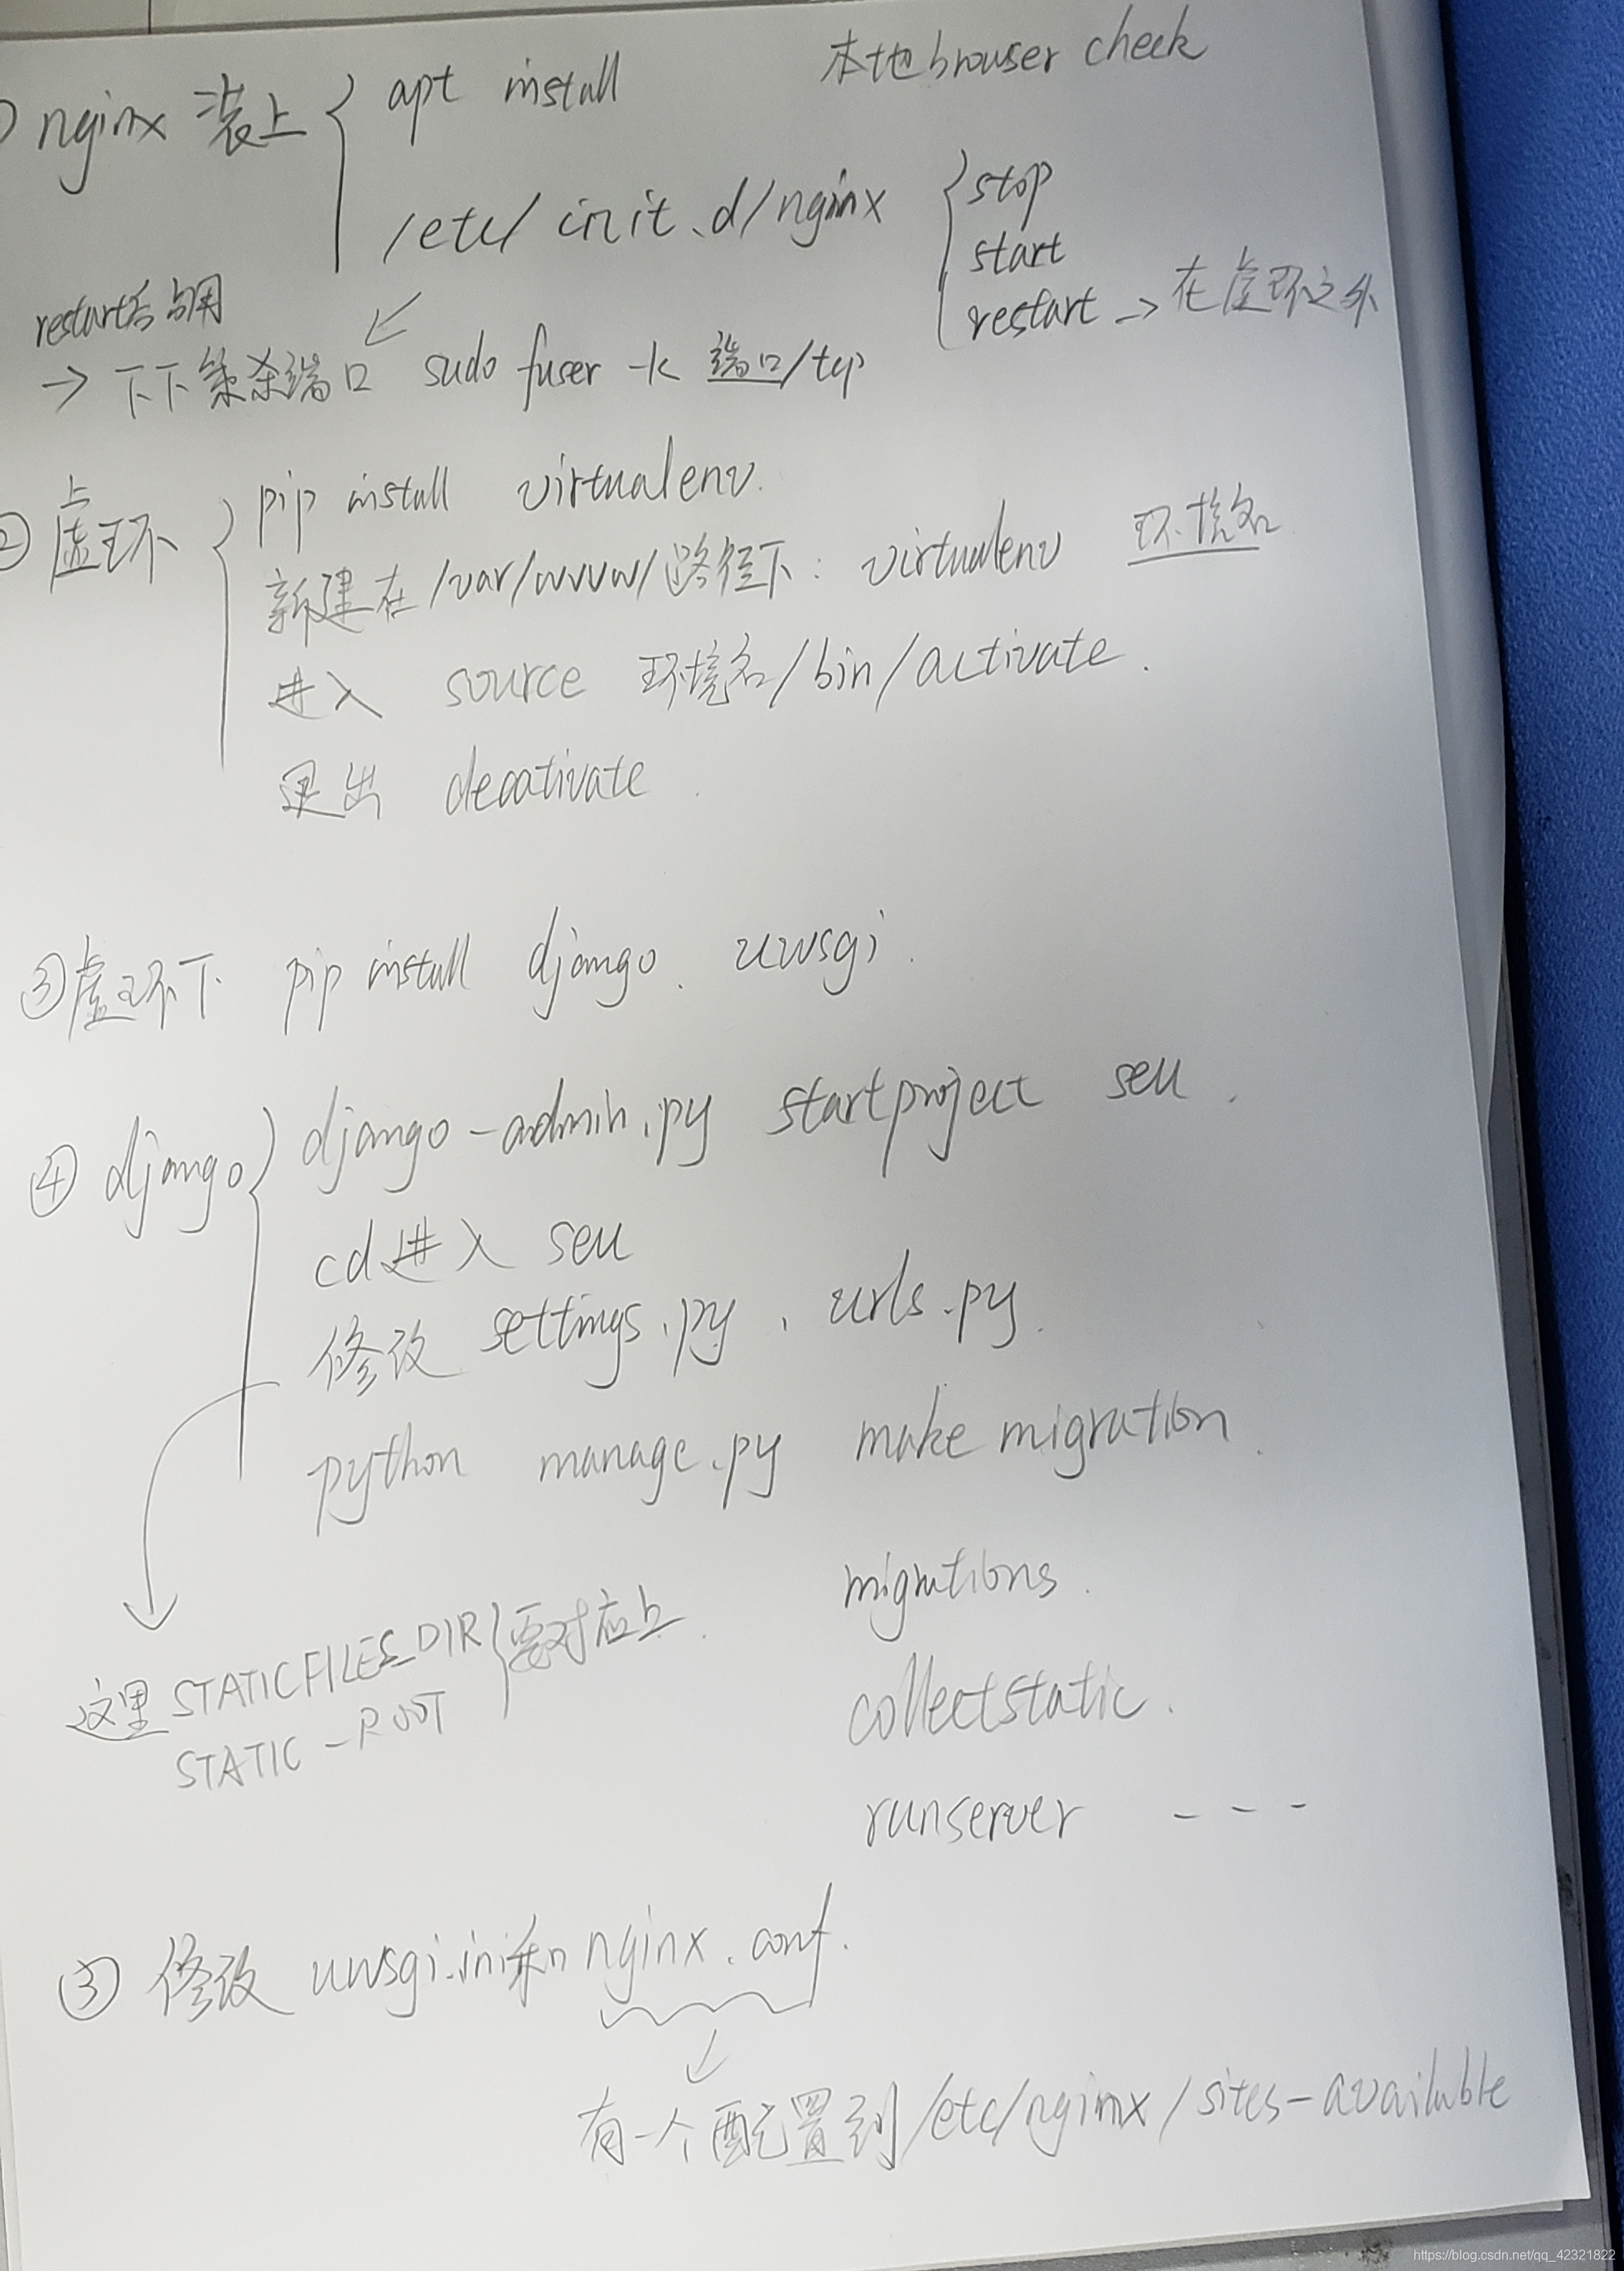 ① nginx 装上 { apt install 本地browser check
/etc/init.d/nginx { stop
start
restart → 在虚环之外
restart后占用
→ 下下策杀端口 sudo fuser -k 端口/tcp
② 上虚环 { pip install virtualenv.
新建在/var/www/路径下: virtualenv 环境名
进入 source 环境名/bin/activate.
退出 deeativate.
③虚环下 pip install django. uwsgi.
④ django { django-admin.py startproject seu.
cd进入 seu
修改 settings.py、urls.py.
python manage.py make migration.
migrations.
这里 STATICFILES_DIR } 要对应上.
STATIC-ROOT
collectstatic.
runserver ---
⑤ 修改 uwsgi.ini和nginx.conf.
有一个配置到/etc/nginx/sites-available
https://blog.csdn.net/qq_42321822